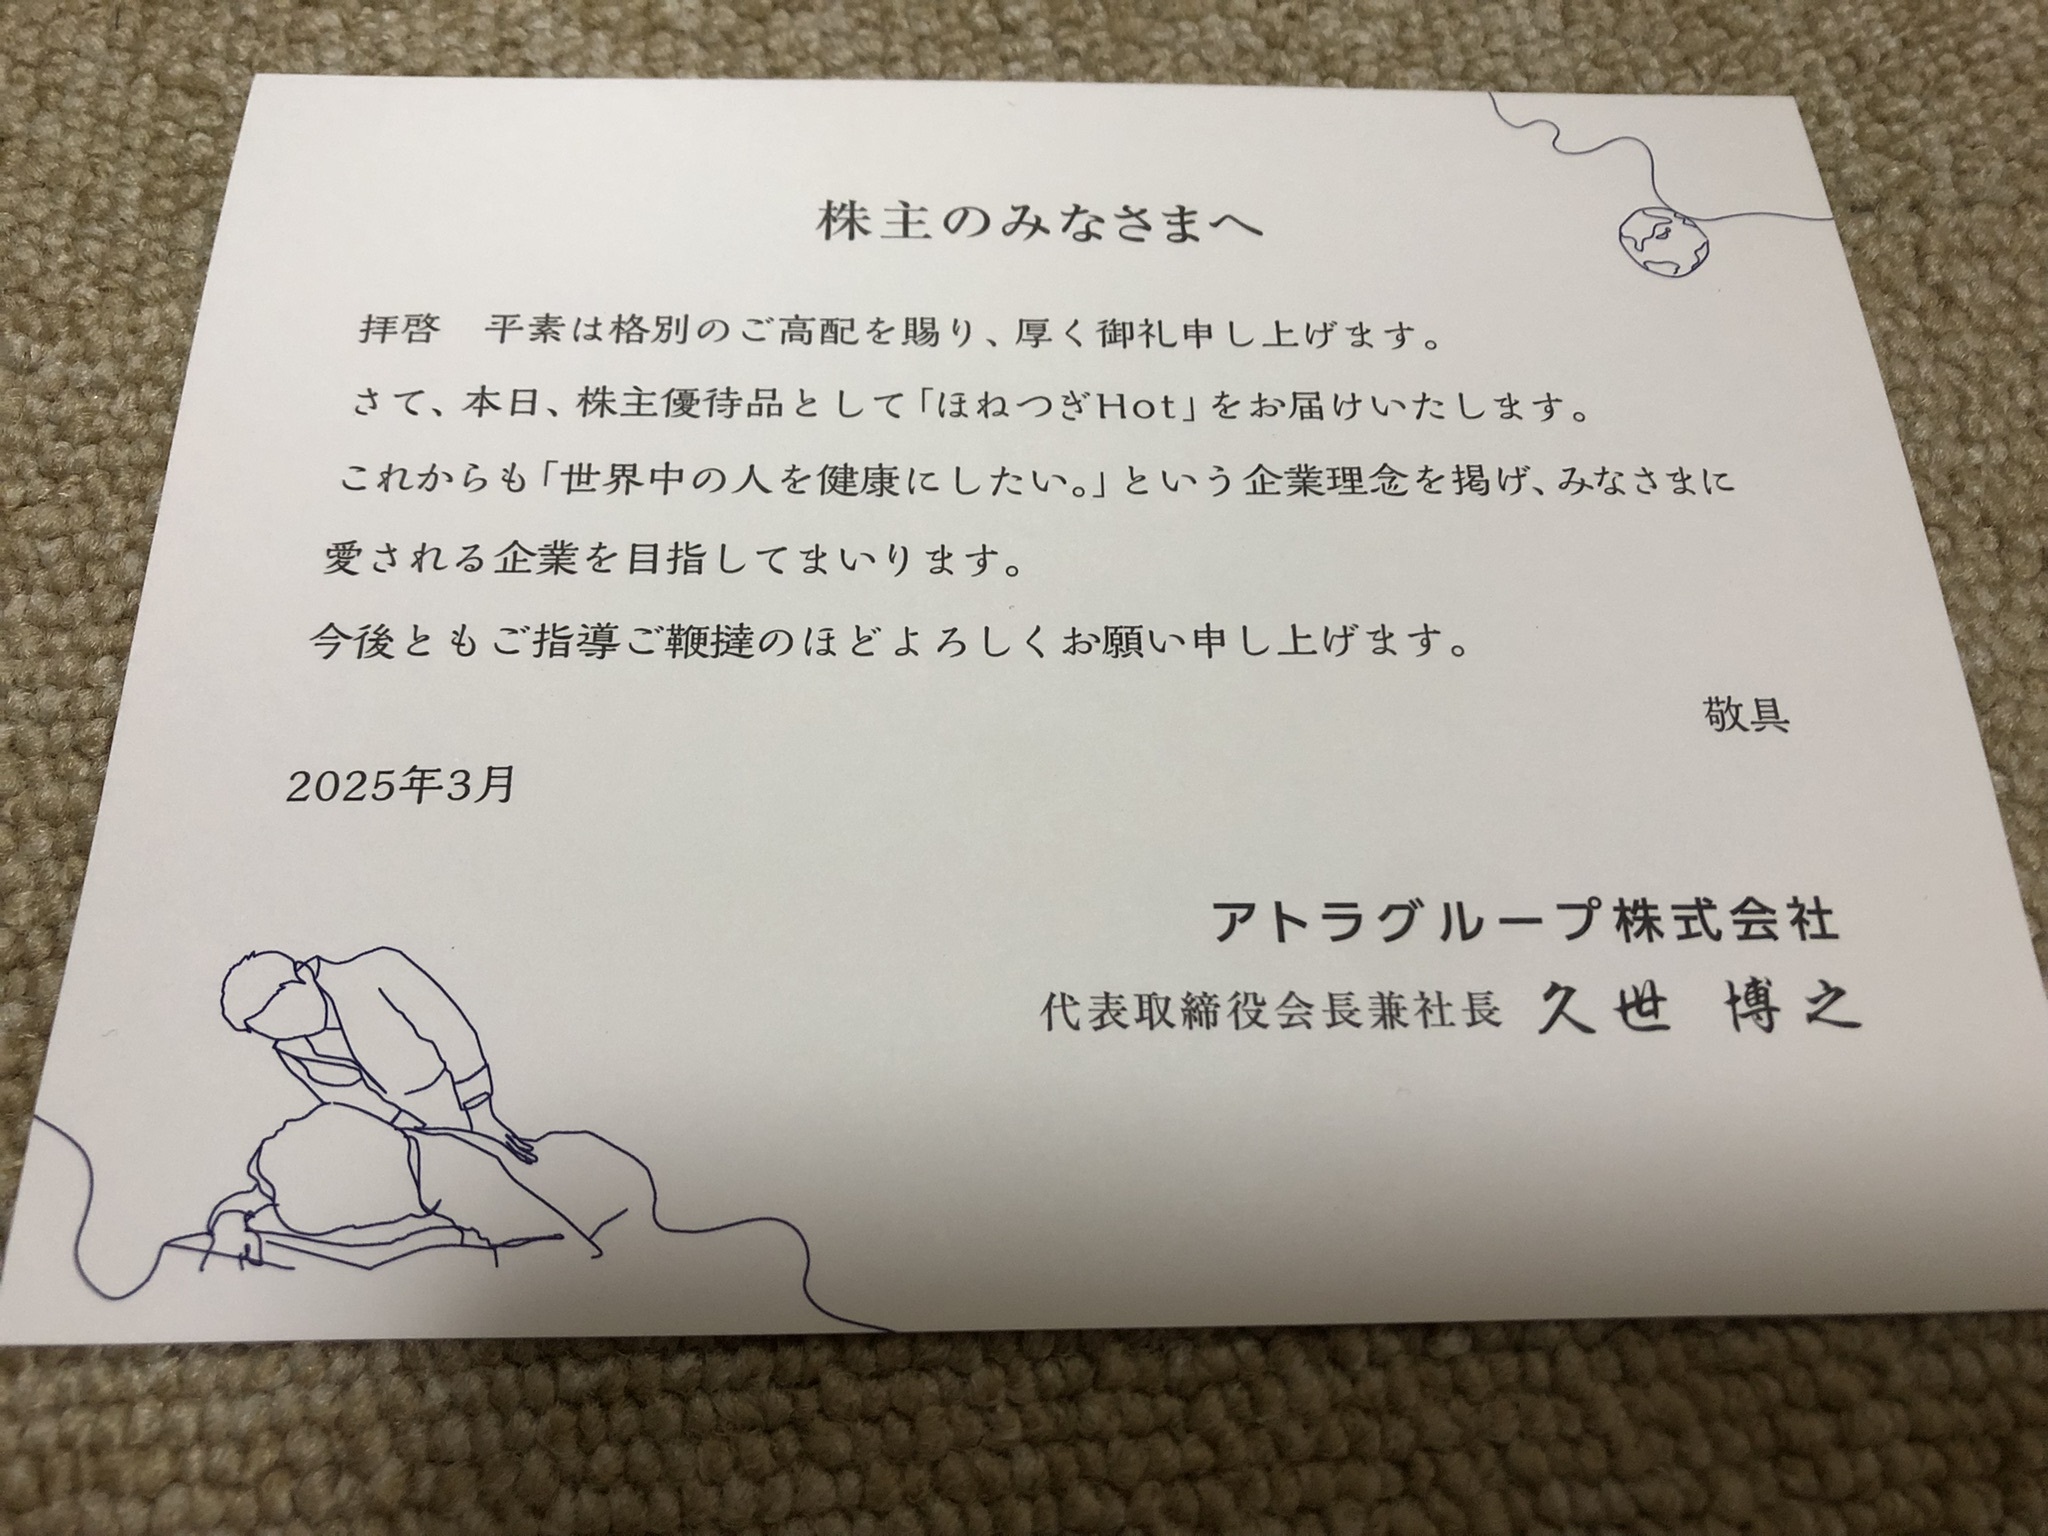 株主のみなさまへ
拝啓　平素は格別のご高配を賜り、厚く御礼申し上げます。
さて、本日、株主優待品として「ほねつぎHot」をお届けいたします。
これからも「世界中の人を健康にしたい。」という企業理念を掲げ、みなさまに
愛される企業を目指してまいります。
今後ともご指導ご鞭撻のほどよろしくお願い申し上げます。
敬具
2025年3月
アトラグループ株式会社
代表取締役会長兼社長 久世 博之